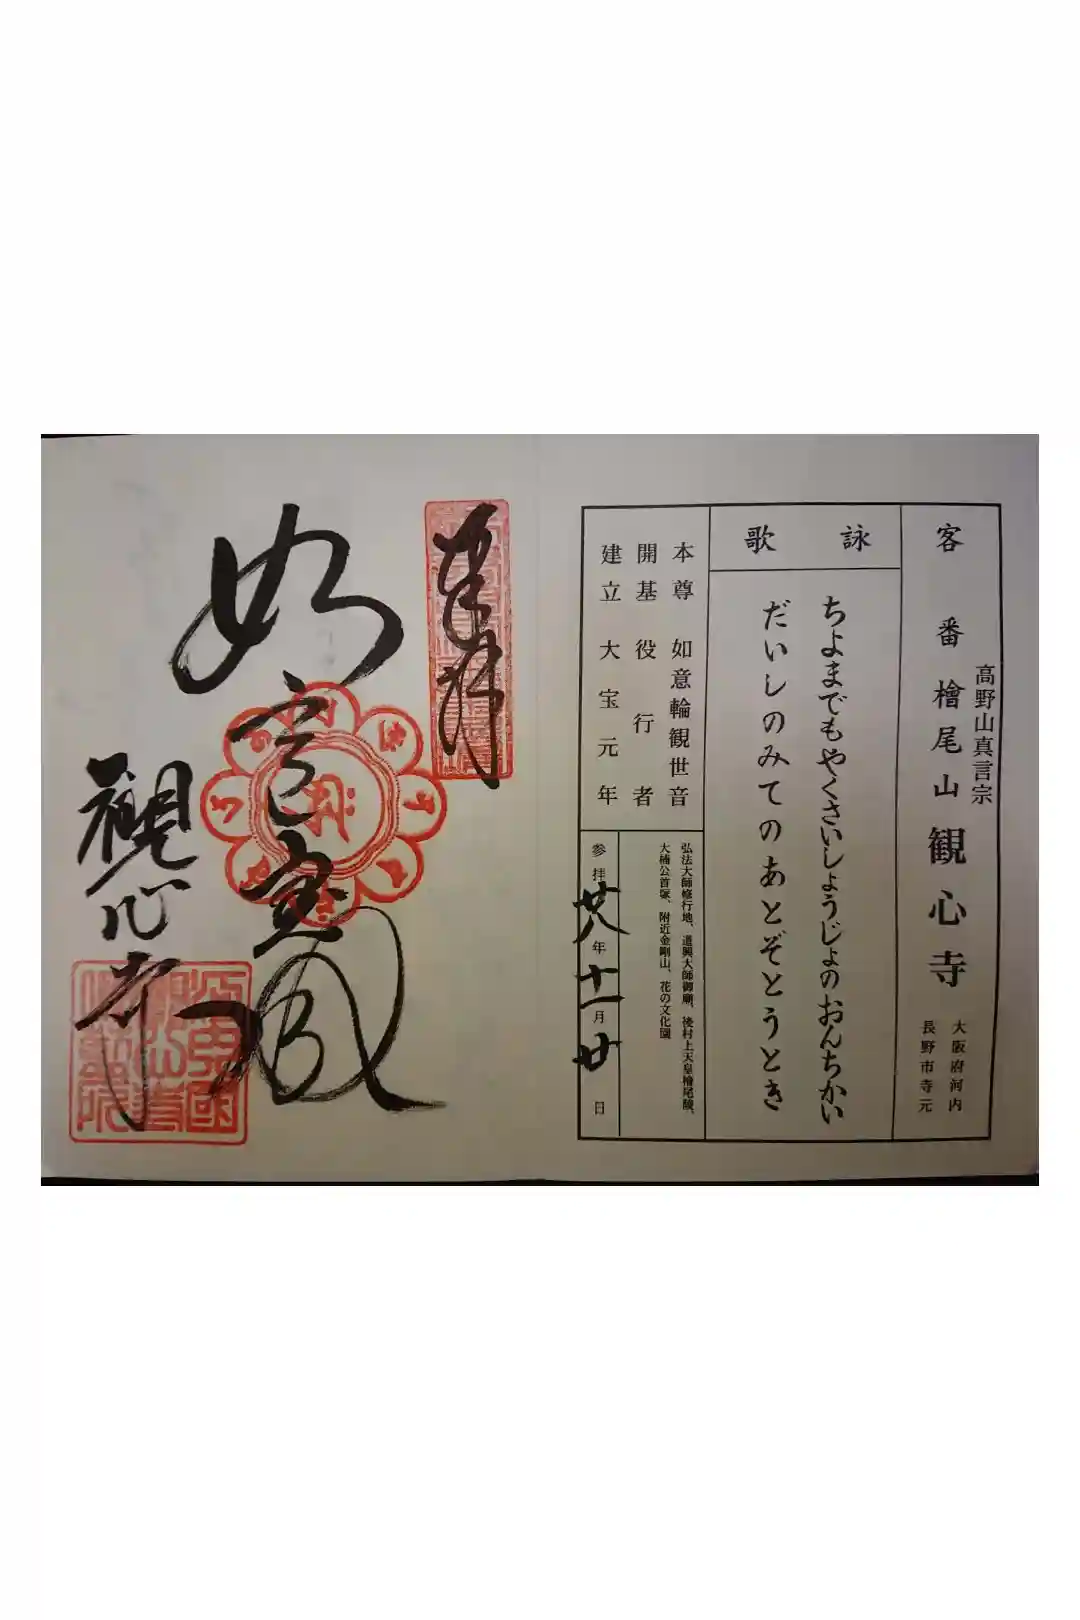 客番
高野山真言宗
檜尾山観心寺
大阪府河内
長野市寺元
詠歌
ちよまでもやくさいしょうじょのおんちかい
だいしのみてのあとぞとうとき
本尊 如意輪観世音
開基 役行者
建立 大宝元年
弘法大師修行地、道興大師御廟、後村上天皇檜尾陵、
大楠公首塚、附近金剛山、花の文化園
参拝廿八年十一月廿日
奉拝
如意宝
觀心寺